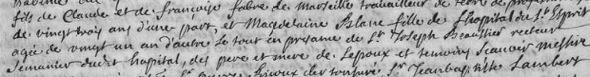 fils de Claude et de françoise fabre de Marseille travailleur de terre de
de vingt trois ans d'une part, et Magdelaine Blanc fille de l'hopital du St Esprit
agée de vingt un an d'autre le tout en presance de Sr Joseph Beaussier recteur
semanier dudit hopital, des pere et mere de Lepoux et temoins scavoir messire
Sr Jeanbaptiste Lambert